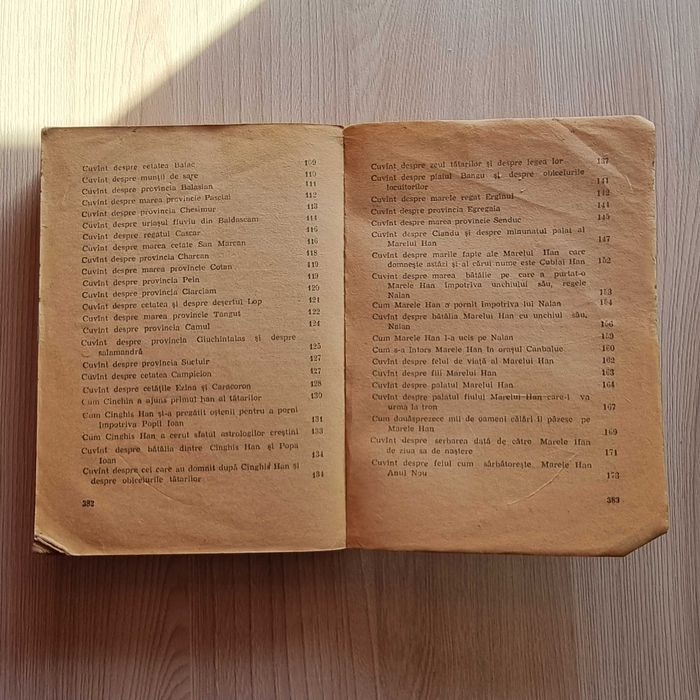 Cuvînt despre cetatea Balac 109
Cuvînt despre munții de sare 110
Cuvînt despre provincia Balasian 111
Cuvînt despre marea provincie Pasciai 112
Cuvînt despre provincia Chesimur 113
Cuvînt despre uriașul fluviu din Baldascam 114
Cuvînt despre regatul Cascar 116
Cuvînt despre marea cetate San Marcan 116
Cuvînt despre provincia Charcan 118
Cuvînt despre marea provincie Cotan 119
Cuvînt despre provincia Pein 119
Cuvînt despre provincia Ciarciam 120
Cuvînt despre cetatea și despre deșertul Lop 121
Cuvînt despre marea provincie Tangut 122
Cuvînt despre provincia Camul 124
Cuvînt despre provincia Giuchintalas și despre
salamandră 125
Cuvînt despre provincia Suctuir 127
Cuvînt despre cetatea Campicion 127
Cuvînt despre cetățile Ezina și Caracoron 128
Cum Cinchin a ajuns primul han al tătarilor 130
Cum Cinghis Han și-a pregătit oștenii pentru a porni
împotriva Popii Ioan 131
Cum Cinghis Han a cerut sfatul astrologilor creștini 133
Cuvînt despre bătălia dintre Cinghis Han și Popa
Ioan 134
Cuvînt despre cei care au domnit după Cinghis Han și
despre obiceiurile tătarilor 134
382
Cuvînt despre zeul tătarilor și despre legea lor 137
Cuvînt despre platul Bangu și despre obiceiurile
locuitorilor 141
Cuvînt despre marele regat Erginul 142
Cuvînt despre provincia Egregaia 144
Cuvînt despre marea provincie Senduc 145
Cuvînt despre Ciandu și despre minunatul palat al
Marelui Han 147
Cuvînt despre marile fapte ale Marelui Han care
domnește astăzi și al cărui nume este Cublai Han 152
Cuvînt despre marea bătălie pe care a purtat-o
Marele Han împotriva unchiului său, regele
Naian 153
Cum Marele Han a pornit împotriva lui Naian 154
Cuvînt despre bătălia Marelui Han cu unchiul său,
Naian 156
Cum Marele Han l-a ucis pe Naian 159
Cum s-a întors Marele Han în orașul Canbalue 160
Cuvînt despre felul de viață al Marelui Han 162
Cuvînt despre fiii Marelui Han 163
Cuvînt despre palatul Marelui Han 164
Cuvînt despre palatul fiului Marelui Han care-i va
urma la tron 167
Cum douăsprezece mii de oameni călări îl păzesc pe
Marele Han 169
Cuvînt despre serbarea dată de către Marele Han
de ziua sa de naștere 171
Cuvînt despre felul cum sărbătorește Marele Han
Anul Nou 173
383